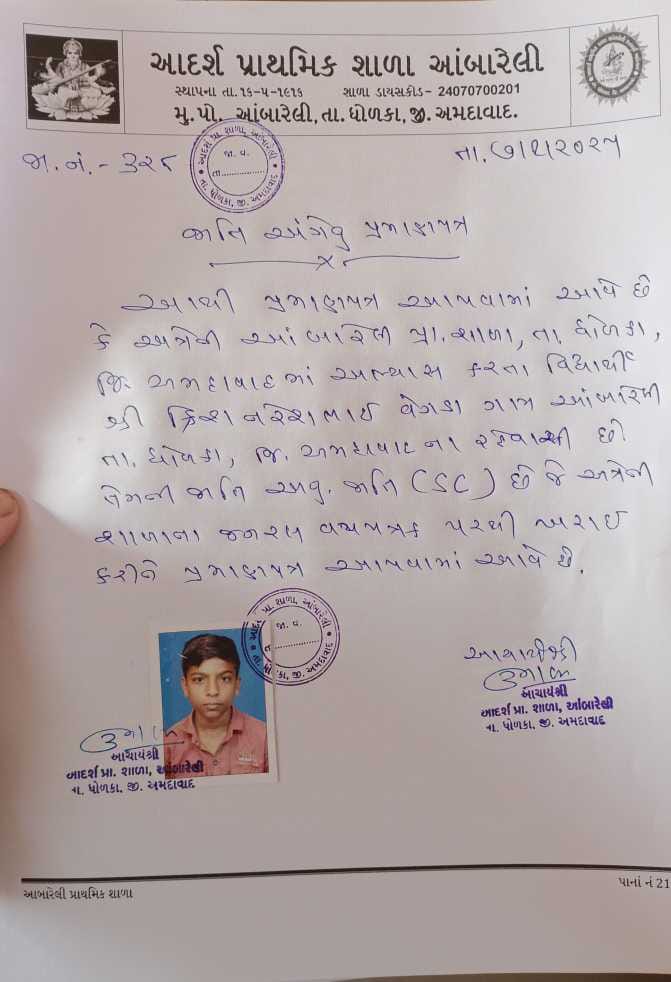 આદર્શ પ્રાથમિક શાળા આંબારેલી
સ્થાપના તા.૧૬-૫-૧૯૧૬ શાળા ડાયસકોડ- 24070700201
મુ.પો. આંબારેલી, તા. ધોળકા, જી. અમદાવાદ.
જા.નં.- ૩૨૮
તા. ૭/૨/૨૦૨૫
આદર્શ પ્રા. શાળા, આંબારેલી
જા. વ.
તા.
તા. ધોળકા, જી. અમદાવાદ
જાતિ અંગેનું પ્રમાણપત્ર
આથી પ્રમાણપત્ર આપવામાં આવે છે
કે અત્રેની આંબારેલી પ્રા. શાળા, તા. ધોળકા,
જિ. અમદાવાદમાં અભ્યાસ કરતા વિદ્યાર્થી
શ્રી ક્રિશ નરેશભાઈ વેગડા ગામ આંબારેલી
તા. ધોળકા, જિ. અમદાવાદ ના રહેવાસી છે.
તેમની જાતિ અનુ. જાતિ (SC) છે જે અત્રેની
શાળાના જનરલ વયપત્રક પરથી ખરાઈ
કરીને પ્રમાણપત્ર આપવામાં આવે છે.
પ્રા. શાળા, આંબારેલી
જા. વ.
જી. અમદાવાદ
આચાર્યશ્રી
આચાર્યશ્રી
આદર્શ પ્રા. શાળા, આંબારેલી
તા. ધોળકા. જી. અમદાવાદ
આચાર્યશ્રી
આદર્શ પ્રા. શાળા, આંબારેલી
તા. ધોળકા. જી. અમદાવાદ
આંબારેલી પ્રાથમિક શાળા
પાનાં નં 21